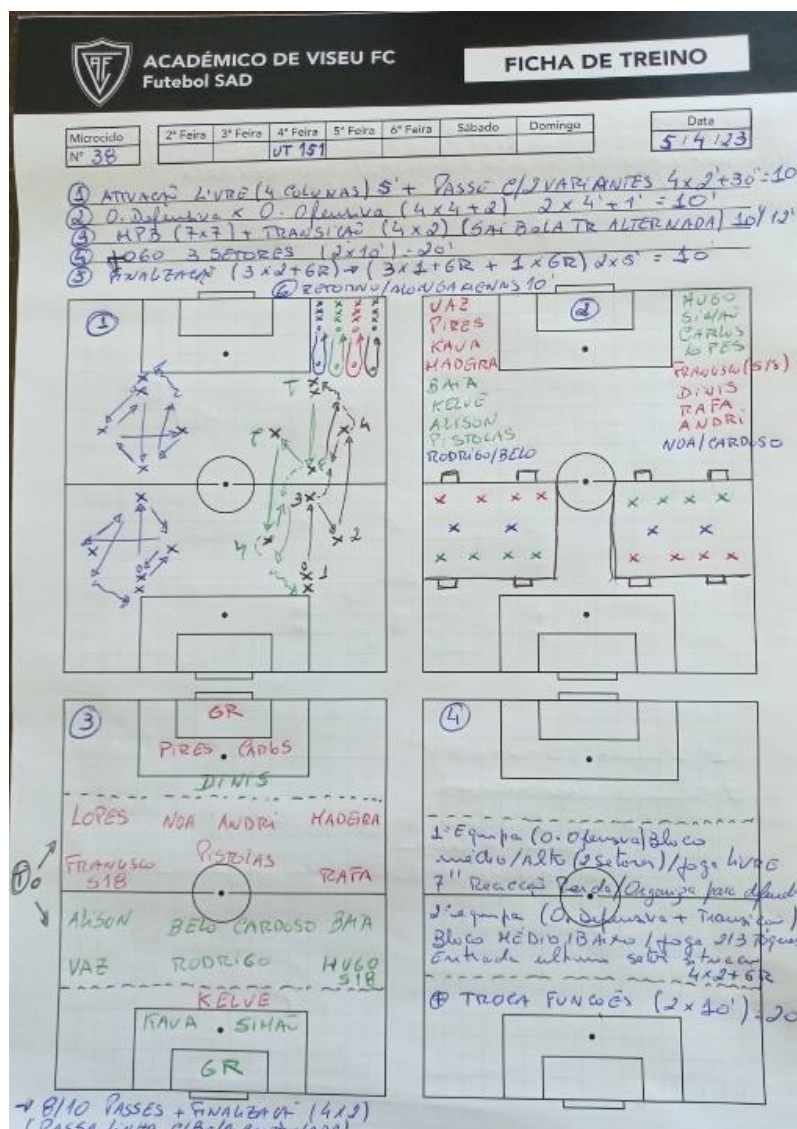 ACADÉMICO DE VISEU FC
Futebol SAD
FICHA DE TREINO
Microciclo
Nº 38
2ª Feira 3ª Feira 4ª Feira 5ª Feira 6ª Feira Sábado Domingo
UT 151
Data
5/4/23
① ATIVAÇÃO LIVRE (4 COLUNAS) 5' + PASSE C/2 VARIANTES 4x2'+30''=10'
② O. Defensiva x O. Ofensiva (4x4+2) 2x4'+1' = 10'
③ MPB (7x7) + TRANSIÇÃO (4x2) (SAI BOLA TR ALTERNADA) 10'/12'
④ JOGO 3 SETORES (2x10') = 20'
⑤ FINALIZAÇÃO (3x2+GR) → (3x1+GR + 1xGR) 2x5' = 10'
⑥ RETORNO/ALONGAMENTOS 10'
①
T
T
4
3
2
4
1
②
VAZ
PIRES
KAVA
MADEIRA
BAIA
KELVE
ALISON
PISTOLAS
RODRIGO/BELO
HUGO
SIMÃO
CARLOS
LOPES
FRANCISCO (S18)
DINIS
RAFA
ANDRI
NOA/CARDOSO
③
GR
PIRES CARLOS
DINIS
LOPES NOA ANDRI MADEIRA
FRANCISCO S18 PISTOLAS RAFA
T
ALISON BELO CARDOSO BAIA
VAZ RODRIGO HUGO S18
KELVE
KAVA SIMÃO
GR
④
1ª Equipa (O. Ofensiva) Bloco
médio/Alto (2 setores) / joga LIVRE
7'' Reacção Perda/Organiza para defender
2ª equipa (O. Defensiva + Transição)
Bloco MÉDIO/BAIXO / joga 2/3 Toques
Entrada ultimo setor situação
4x2+GR
⊕ TROCA FUNÇÕES (2x10') = 20
→ 8/10 PASSES + FINALIZAÇÃO (4x2)